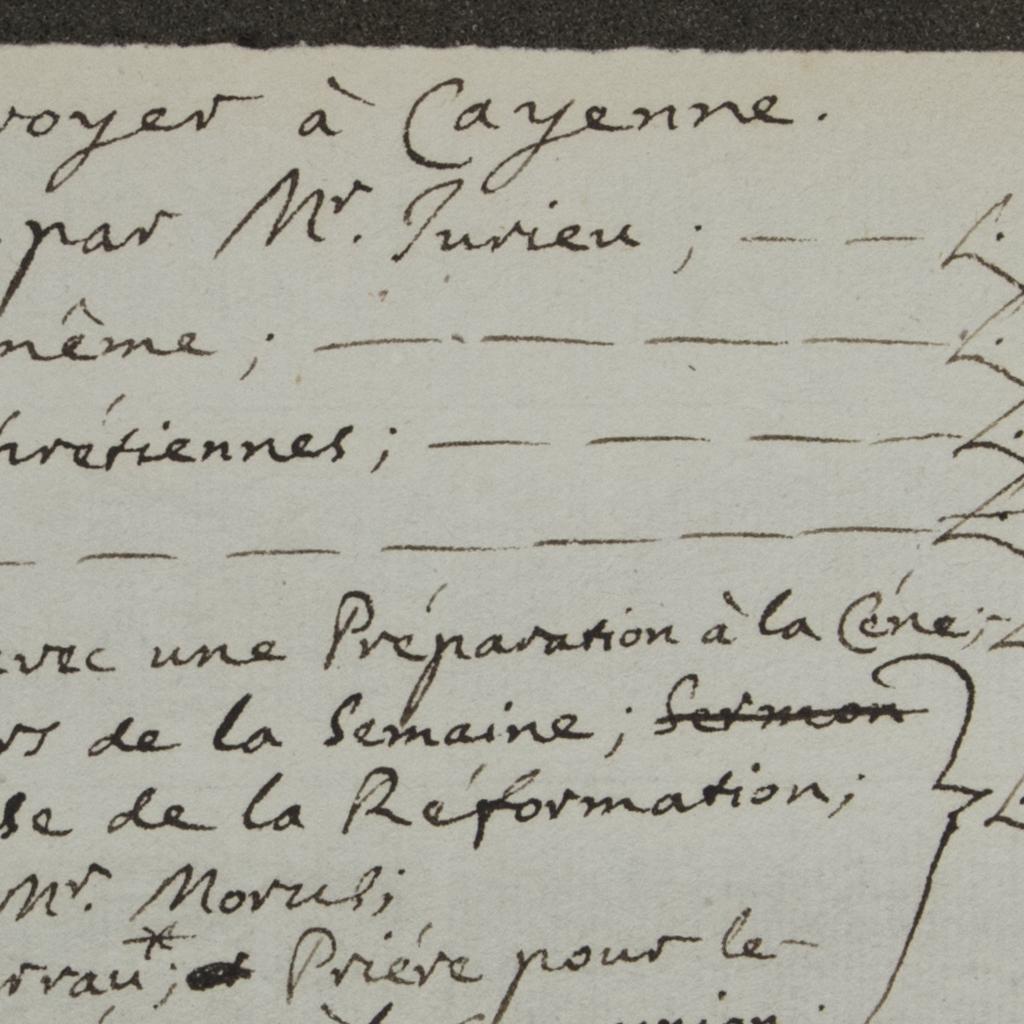 voyer à Cayenne.
par Mr. Jurieu ; — — L.
même ; — — — — L.
hrétiennes ; — — — — L.
— — — — — — — L.
avec une Préparation à la Céne; – L
rs de la Semaine ; Sermon
se de la Réformation; L.
Mr. Morus;
rrau*; Priére pour le-
union